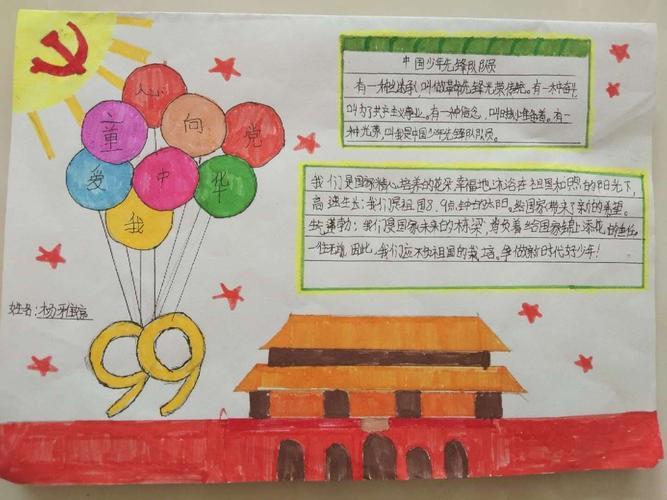 童
心
向
党
爱
中
华
我
姓名:杨雅
99
中国少年先锋队队员
有一种继承叫做革命先锋光荣传统。有一种奋斗
叫为了共产主义事业。有一种信念,叫时刻准备着。有一
种光荣,叫我是中国少年先锋队队员。
我们是国家精心培养的花朵,幸福地沐浴在祖国和煦的阳光下,
高速生长;我们是祖国8、9点钟的太阳。给国家带来了新的希望。
蓬勃;我们是国家未来的栋梁,肩负着给国家锦上添花的责任
因此,我们应不负祖国的栽培,争做新时代好少年!